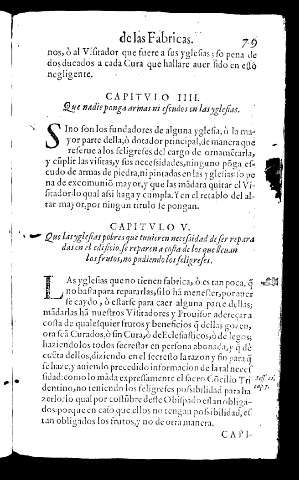 de las Fabricas. 79
nos, ò al Visitador que fuere a sus yglesias: so pena de
dos ducados a cada Cura que hallare auer sido en esto
negligente.
CAPITVLO IIII.
Que nadie ponga armas ni escudos en las yglesias.
SINO son los fundadores de alguna yglesia, ò la ma-
yor parte della, ò dotador principal, de manera que
reserue a los feligreses del cargo de ornamẽtarla,
y cũplir las visitas, y sus necesidades, ninguno põga es-
cudo de armas de piedra, ni pintadas en las yglesias: so pe
na de excomuniõ mayor, y que las mãdara quitar el Vi-
sitador: lo qual assi haga y cumpla. Y en el retablo del al-
tar mayor, por ningun titulo se pongan.
CAPITVLO V.
Que las yglesias pobres que tuuieren necessidad de ser repara
das en el edificio, se reparen a costa de los que lleuan
los frutos, no pudiendo los feligreses.
LAS yglesias que no tienen fabrica, ò es tan poca, q̃
no basta para repararlas, si lo hã menester, por auer
se caydo, ò estarse para caer alguna parte dellas:
mãdarlas hã nuestros Visitadores y Prouisor adereçar a
costa de qualesquier frutos y beneficios q̃ dellas gozen,
ora sea Curados, ò sin Cura, ò de Eclesiasticos, ò de legos,
haziendolos todos secrestar en persona abonada, y q̃ dè
cuẽta dellos, diziendo en el secresto la razon y fin para q̃
se haze, y auiendo precedido informacion de la tal necess-
sidad: como lo mãda expressamente el sacro Cõcilio Tri
dentino, no teniendo los feligreses possibilidad para ha-
zerlo: lo qual por costũbre deste Obispado estan obliga-
dos porque en caso que ellos no tengan possibilidad, es
tan obligados los frutos, y no de otra manera.
CAPI-